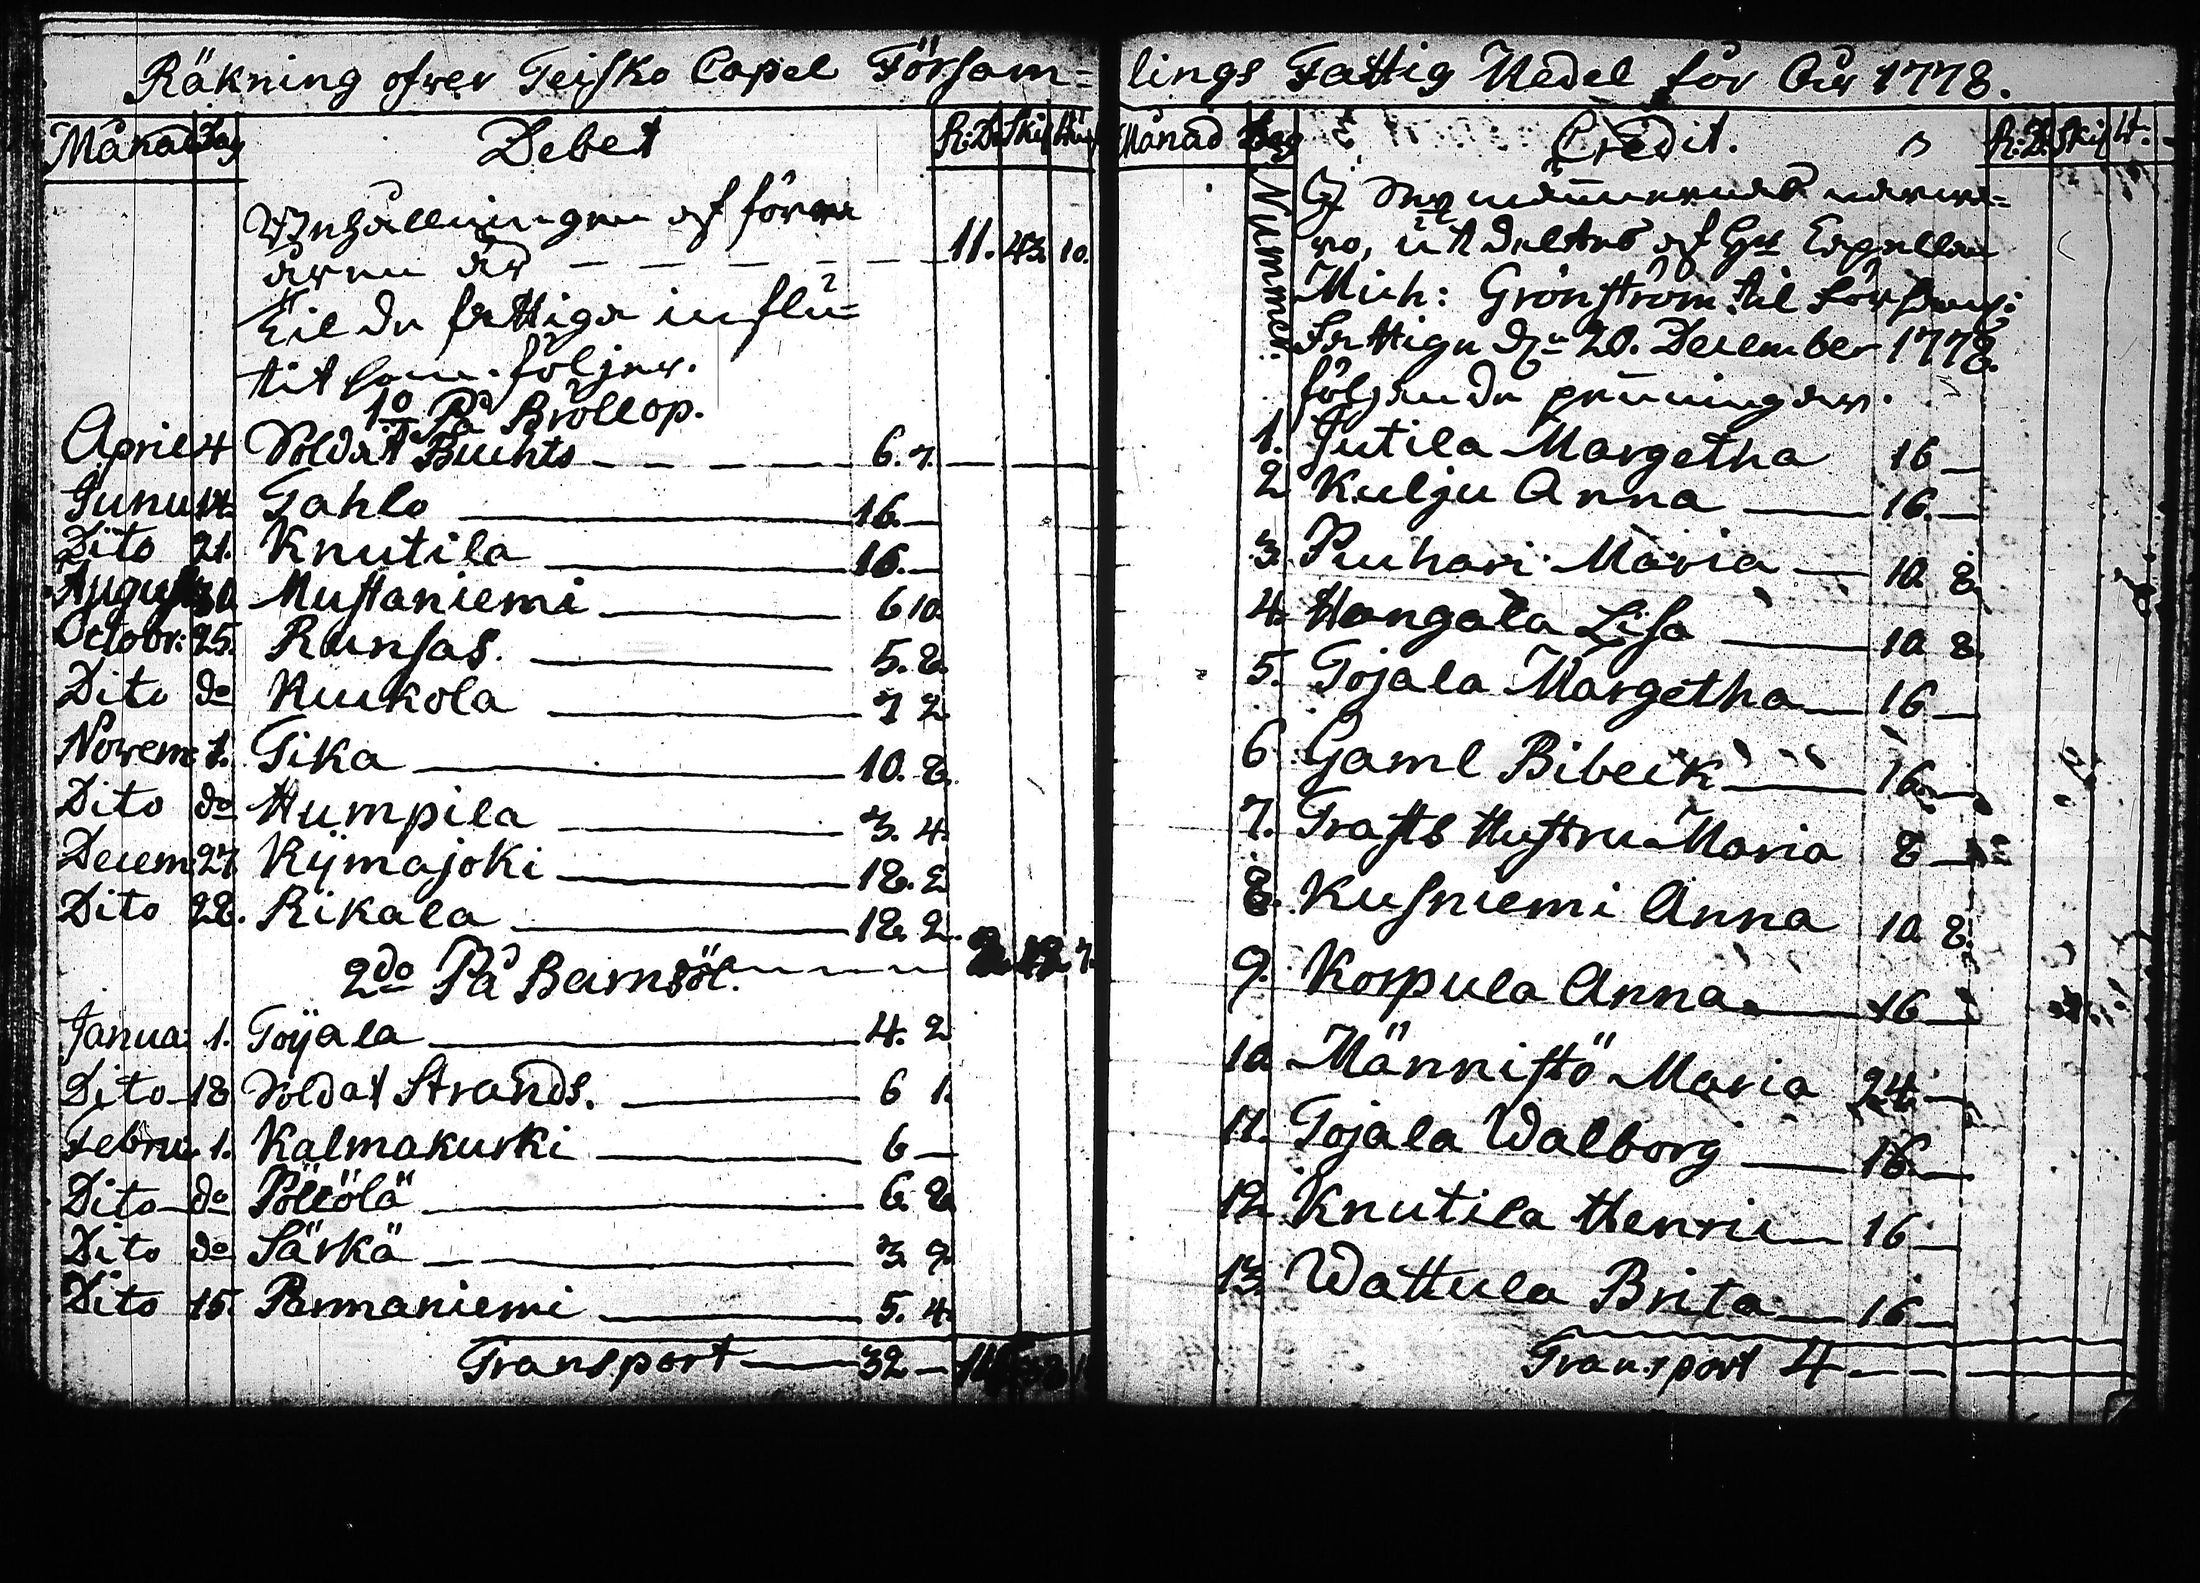 Räkning öfwer Teisko Capel Församlings Fattig Medel för Åhr 1778.
Månad Dag Debet R:D. Skil
Behållningen af förra
åren är — — — — — 11. 43. 10.
Til de fattiga influ-
tit som följer.
1o På Bröllop.
April 4 Soldat Buchts — — — 6. 7.
Juniu 14 Tahlo — 16. —
Dito 21. Knutila — 16. —
August 30 Mustaniemi — 6 10
Octobr: 25. Runsas. — 5. 8.
Dito do Kuukola — 7 2
Novem: 1. Tika — 10. 8.
Dito do Humpila — 3. 4.
Decem: 27 Kijmajoki — 18. 2
Dito 28. Rikala — 18. 2.
2do På Barnsöl.
Janua: 1. Toijala — 4. 2
Dito 18 Soldat Strands. — 6 1.
Febru 1. Kalmakurki — 6 —
Dito do Pöllölä — 6. 8.
Dito do Särkä — 3. 9.
Dito 15. Parmaniemi — 5. 4.
Transport — 32 —
Månad Dag Credit. R:D. Skil
Nummer:
utdeltes af Capellan
Mich: Grönström til Församl:
Fattige den 20. December 1778.
följande penningar.
1. Jutila Margetha 16 —
2 Kulju Anna — 16. —
3. Puuhari Maria — 10 8.
4. Hangala Lisa — 10 8.
5. Tojala Margetha — 16 —
6 Gaml Bibeik — 16. —
7. Trasts Hustru Maria 8 —
8. Kusniemi Anna 10 8.
9. Korpula Anna — 16 —
10. Männistö Maria 24 —
11. Tojala Walborg — 16 —
12. Knutila Henric — 16 —
13. Wattula Brita — 16 —
Transport 4 — —